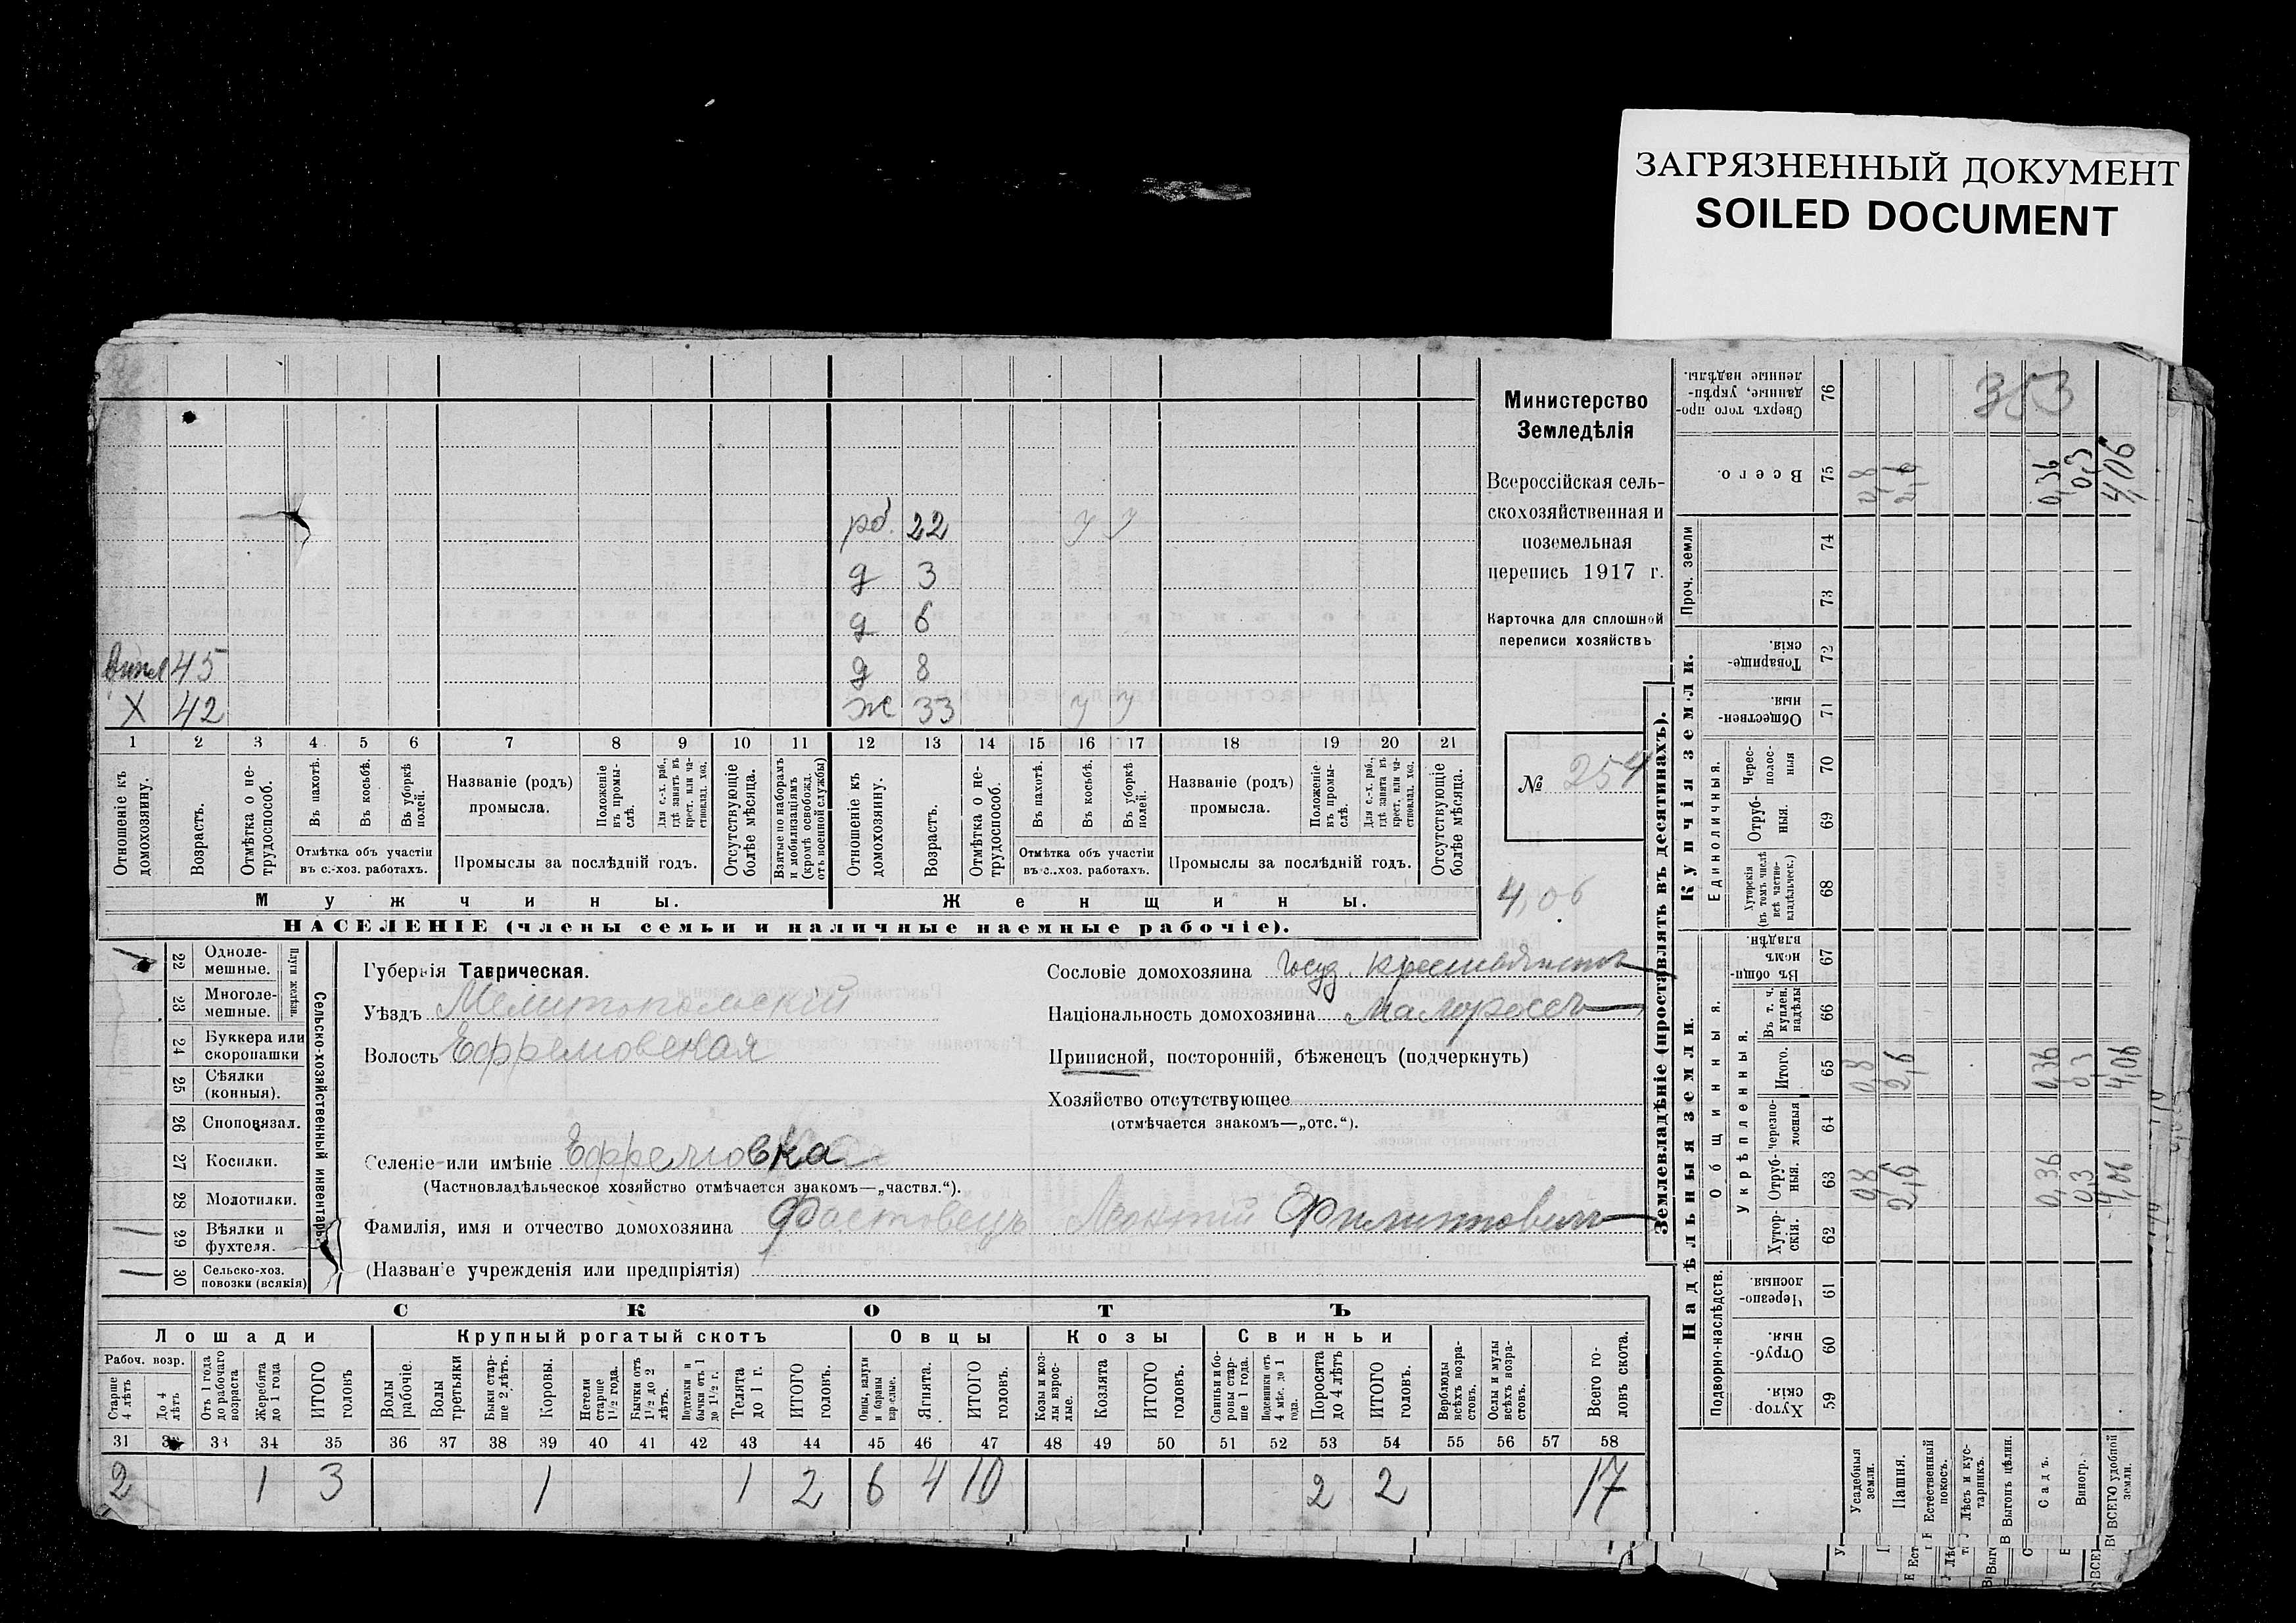 ЗАГРЯЗНЕННЫЙ ДОКУМЕНТ
SOILED DOCUMENT
353
Министерство
Земледѣлія
Всероссійская сель-
скохозяйственная и
поземельная
перепись 1917 г.
Карточка для сплошной
переписи хозяйствъ
№ 254
4,06
рб. 22 у у
д 3
д 6
д 8
45
Х 42 ж 33 у у
1 2 3 4 5 6 7 8 9 10 11 12 13 14 15 16 17 18 19 20 21
Отношеніе къ домохозяину.
Возрастъ.
Отмѣтка о не-трудоспособ.
Въ пахотѣ.
Въ косьбѣ.
Въ уборкѣ полей.
Отмѣтка объ участіи
въ с.-хоз. работахъ.
Названіе (родъ)
промысла.
Положеніе въ промы-слѣ.
Для с.-х. раб., гдѣ занятъ въ крест. или ча-стновлад. хоз.
Промыслы за послѣдній годъ.
Отсутствующіе болѣе мѣсяца.
Взятые по наборамъ и мобилизаціямъ (кромѣ освобожд. отъ военной службы)
Отношеніе къ домохозяину.
Возрастъ.
Отмѣтка о не-трудоспособ.
Въ пахотѣ.
Въ косьбѣ.
Въ уборкѣ полей.
Отмѣтка объ участіи
въ с.-хоз. работахъ.
Названіе (родъ)
промысла.
Положеніе въ промы-слѣ.
Для с.-х. раб., гдѣ занята въ крест. или ча-стновлад. хоз.
Промыслы за послѣдній годъ.
Отсутствующіе болѣе мѣсяца.
Мужчины. Женщины.
НАСЕЛЕНІЕ (члены семьи и наличные наемные рабочіе).
Сельско-хозяйственный инвентарь.
Плуги желѣзн.
22 Одноле-мешные.
23 Многоле-мешные.
24 Буккера или скоропашки
25 Сѣялки (конныя).
26 Сноповязал.
27 Косилки.
28 Молотилки.
1 29 Вѣялки и фухтеля.
1 30 Сельско-хоз. повозки (всякія)
Губернія Таврическая.
Уѣздъ Мелитопольскій
Волость Ефремовская
Сословіе домохозяина Госуд. крестьянинъ
Національность домохозяина Малороссъ
Приписной, посторонній, бѣженецъ (подчеркнуть)
Хозяйство отсутствующее
(отмѣчается знакомъ—„отс.“).
Селеніе или имѣніе Ефремовка
(Частновладѣльческое хозяйство отмѣчается знакомъ—„частвл.“).
Фамилія, имя и отчество домохозяина Фастовецъ Леонтій Филиппович
(Названіе учрежденія или предпріятія)
СКОТЪ
Лошади Крупный рогатый скотъ Овцы Козы Свиньи
Рабоч. возр.
Старше 4 лѣтъ
До 4 лѣтъ
Отъ 1 года до рабочаго возраста
Жеребята до 1 года
ИТОГО головъ
Волы рабочіе.
Волы третьяки
Быки стар-ше 2 лѣтъ.
Коровы.
Нетели старше 1½ года.
Бычки отъ 1½ до 2 лѣтъ.
Подтелки и бычки отъ 1 до 1½ г.
Телята до 1 г.
ИТОГО головъ.
Овцы, валухи и бараны взрослые.
Ягнята.
ИТОГО головъ.
Козы и коз-лы взрос-лые.
Козлята
ИТОГО головъ.
Свиньи и бо-ровы стар-ше 1 года.
Подсвинки отъ 4 мѣс. до 1 года.
Поросята до 4 лѣтъ
ИТОГО головъ.
Верблюды всѣхъ возра-стовъ.
Ослы и мулы всѣхъ возра-стовъ.
Всего го-ловъ скота.
31 32 33 34 35 36 37 38 39 40 41 42 43 44 45 46 47 48 49 50 51 52 53 54 55 56 57 58
2 1 3 1 1 2 6 4 10 2 2 17
Землевладѣніе (проставлять въ десятинахъ).
Купчія земли.
Надѣльныя земли.
Сверхъ того про-данные, укрѣп-ленные надѣлы. 76
Всего. 75 0,8 2,6 0,36 0,3 4,06
Проч. земли 74
73
Товарище-скія. 72
Обществен-ныя. 71
Единоличныя.
Черес-полос-ныя 70
Отруб-ныя. 69
Хуторскія (въ томъ числѣ всѣ частно-владѣльческ.) 68
Общинныя.
Въ общи-номъ владѣн. 67
Укрѣпленныя.
Въ т. ч. куплен. надѣлы 66
Итого. 65 0,8 2,6 0,36 0,3 4,06
Черезпо-лосныя 64
Отруб-ныя. 63 0,8 2,6 0,36 0,3 4,06
Хутор-скія. 62
Подворно-наслѣдств.
Черезпо-лосныя 61
Отруб-ныя. 60
Хутор-скія 59
Усадебныя земли.
Пашня.
Естественный покосъ.
Лѣсъ и кус-тарникъ.
Выгонъ цѣлин.
Садъ.
Виногр.
ВСЕГО удобной земли.